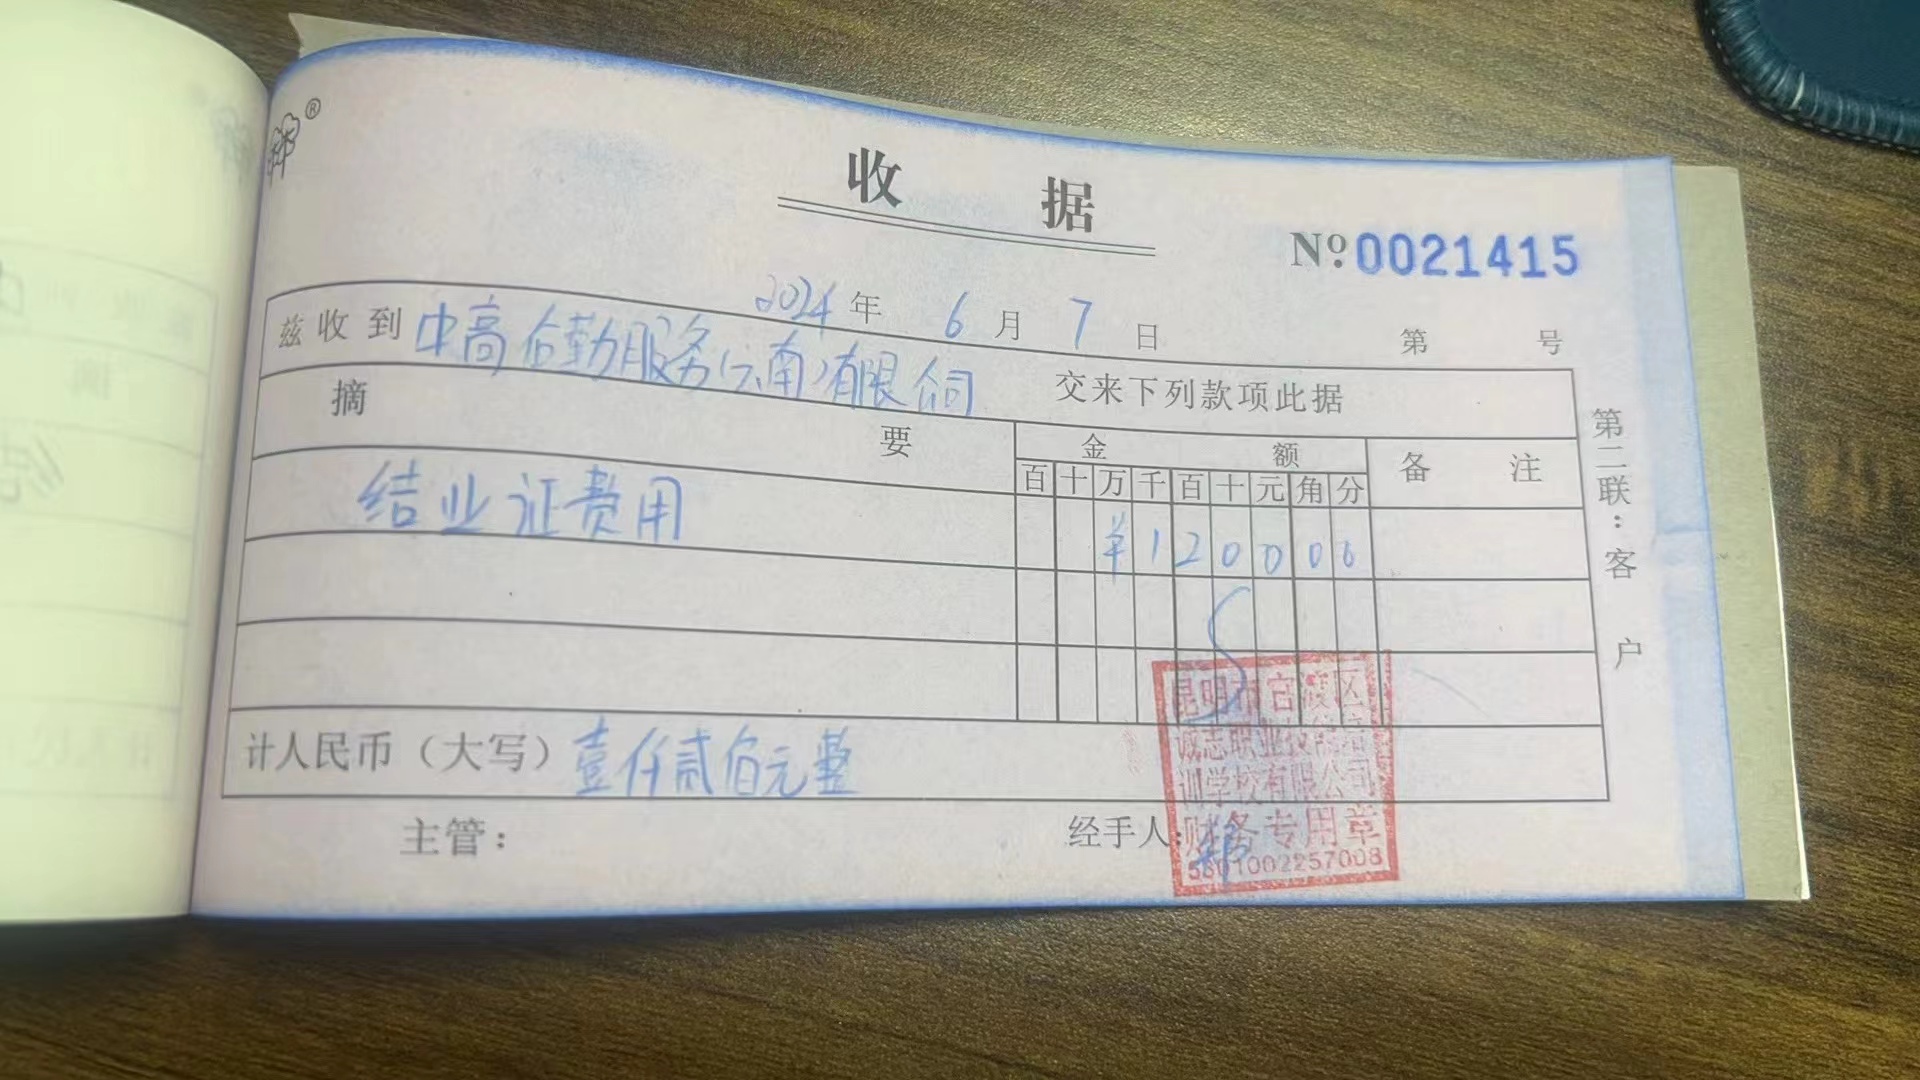 ®
收 据
Nº:0021415
2024年 6月 7日
第 号
兹收到 中高后勤服务(云南)有限公司 交来下列款项此据
摘 要 金 额 备 注
百 十 万 千 百 十 元 角 分
结业证费用 ¥120000
计人民币（大写）壹仟贰佰元整
主管： 经手人：
第二联：客户
昆明市官渡区
诚志职业技能培
训学校有限公司
财务专用章
5301002257008